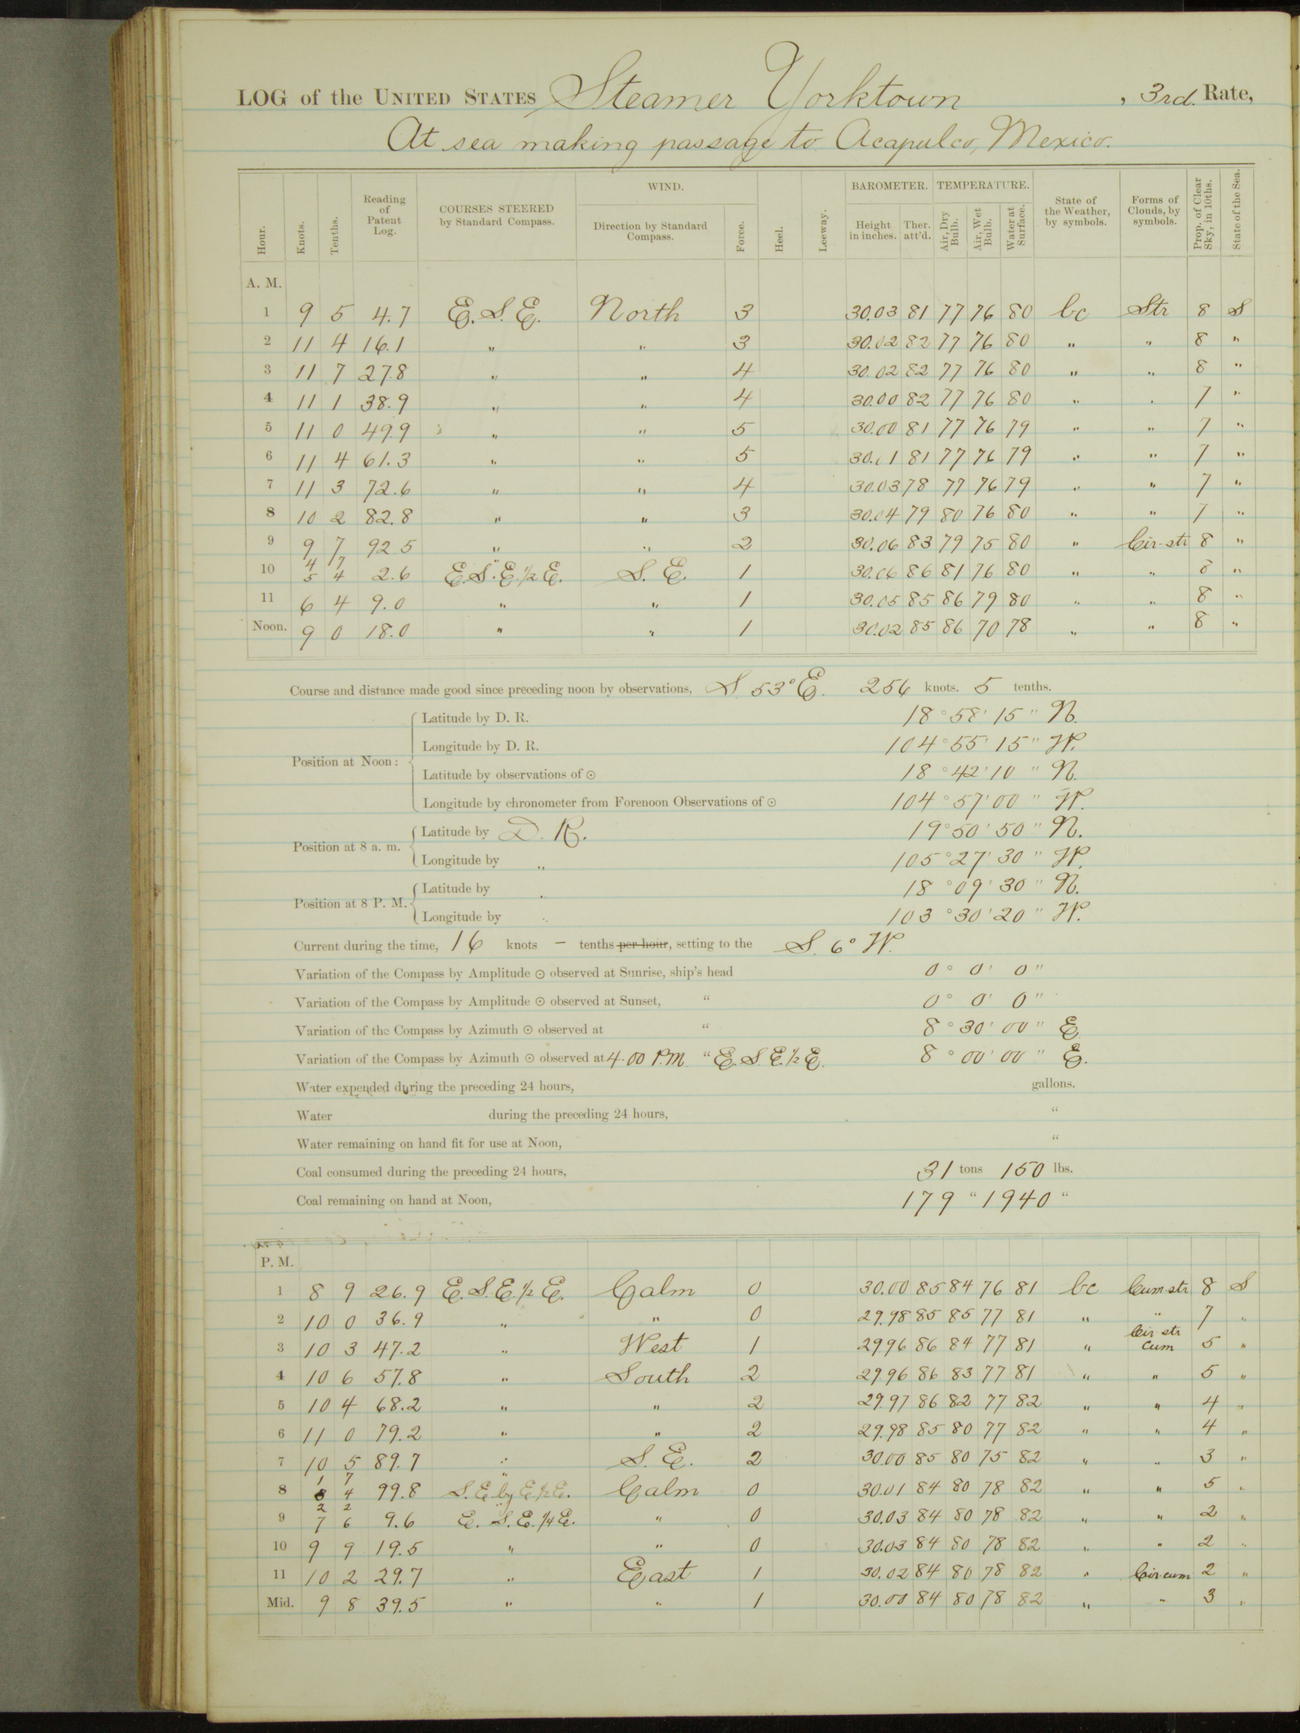 LOG of the UNITED STATES Steamer Yorktown, 3rd. Rate,
At sea making passage to Acapulco, Mexico.
Hour. Knots. Tenths. Reading of Patent Log. COURSES STEERED by Standard Compass. WIND. Direction by Standard Compass. Force. Heel. Leeway. BAROMETER. Height in inches. Ther. att'd. TEMPERATURE. Air, Dry Bulb. Air, Wet Bulb. Water at Surface. State of the Weather, by symbols. Forms of Clouds, by symbols. Prop. of Clear Sky, in 10ths. State of the Sea.
A. M.
1 9 5 4.7 E. S. E. North 3 30.03 81 77 76 80 bc Str 8 S
2 11 4 16.1 " " 3 30.02 82 77 76 80 " " 8 "
3 11 7 27.8 " " 4 30.02 82 77 76 80 " " 8 "
4 11 1 38.9 " " 4 30.00 82 77 76 80 " " 7 "
5 11 0 49.9 " " 5 30.00 81 77 76 79 " " 7 "
6 11 4 61.3 " " 5 30.01 81 77 76 79 " " 7 "
7 11 3 72.6 " " 4 30.03 78 77 76 79 " " 7 "
8 10 2 82.8 " " 3 30.04 79 80 76 80 " " 7 "
9 9 7 92.5 " " 2 30.06 83 79 75 80 " Cir-str 8 "
4 7 "
10 5 4 2.6 E.S.E.½E. S. E. 1 30.06 86 81 76 80 " " 8 "
11 6 4 9.0 " " 1 30.05 85 86 79 80 " " 8 "
Noon. 9 0 18.0 " " 1 30.02 85 86 70 78 " " 8 "
Course and distance made good since preceding noon by observations, S 53° E. 256 knots. 5 tenths.
Position at Noon: Latitude by D. R. 18° 58' 15" N.
Longitude by D. R. 104° 55' 15" W.
Latitude by observations of ☉ 18° 42' 10" N.
Longitude by chronometer from Forenoon Observations of ☉ 104° 57' 00" W.
Position at 8 a. m. Latitude by D. R. 19° 50' 50" N.
Longitude by " 105° 27' 30" W.
Position at 8 P. M. Latitude by " 18° 09' 30" N.
Longitude by " 103° 30' 20" W.
Current during the time, 16 knots — tenths per hour, setting to the S. 6° W.
Variation of the Compass by Amplitude ☉ observed at Sunrise, ship's head 0° 0' 0"
Variation of the Compass by Amplitude ☉ observed at Sunset, " 0° 0' 0"
Variation of the Compass by Azimuth ☉ observed at " 8° 30' 00" E
Variation of the Compass by Azimuth ☉ observed at 4.00 P.M. " E.S.E.½E. 8° 00' 00" E.
Water expended during the preceding 24 hours, gallons.
Water during the preceding 24 hours, "
Water remaining on hand fit for use at Noon, "
Coal consumed during the preceding 24 hours, 31 tons 150 lbs.
Coal remaining on hand at Noon, 179 " 1940 "
P. M.
1 8 9 26.9 E.S.E.½E. Calm 0 30.00 85 84 76 81 bc Cum-str 8 S
2 10 0 36.9 " " 0 29.98 85 85 77 81 " " 7 "
3 10 3 47.2 " West 1 29.96 86 84 77 81 " Cir str Cum 5 "
4 10 6 57.8 " South 2 29.96 86 83 77 81 " " 5 "
5 10 4 68.2 " " 2 29.97 86 82 77 82 " " 4 "
6 11 0 79.2 " " 2 29.98 85 80 77 82 " " 4 "
7 10 5 89.7 " S. E. 2 30.00 85 80 75 82 " " 3 "
1 7 "
8 8 4 99.8 S.E. by E.½E. Calm 0 30.01 84 80 78 82 " " 5 "
2 2 "
9 7 6 9.6 E. S. E. ¼ E. " 0 30.03 84 80 78 82 " " 2 "
10 9 9 19.5 " " 0 30.03 84 80 78 82 " " 2 "
11 10 2 29.7 " East 1 30.02 84 80 78 82 " Cir cum 2 "
Mid. 9 8 39.5 " " 1 30.00 84 80 78 82 " " 3 "